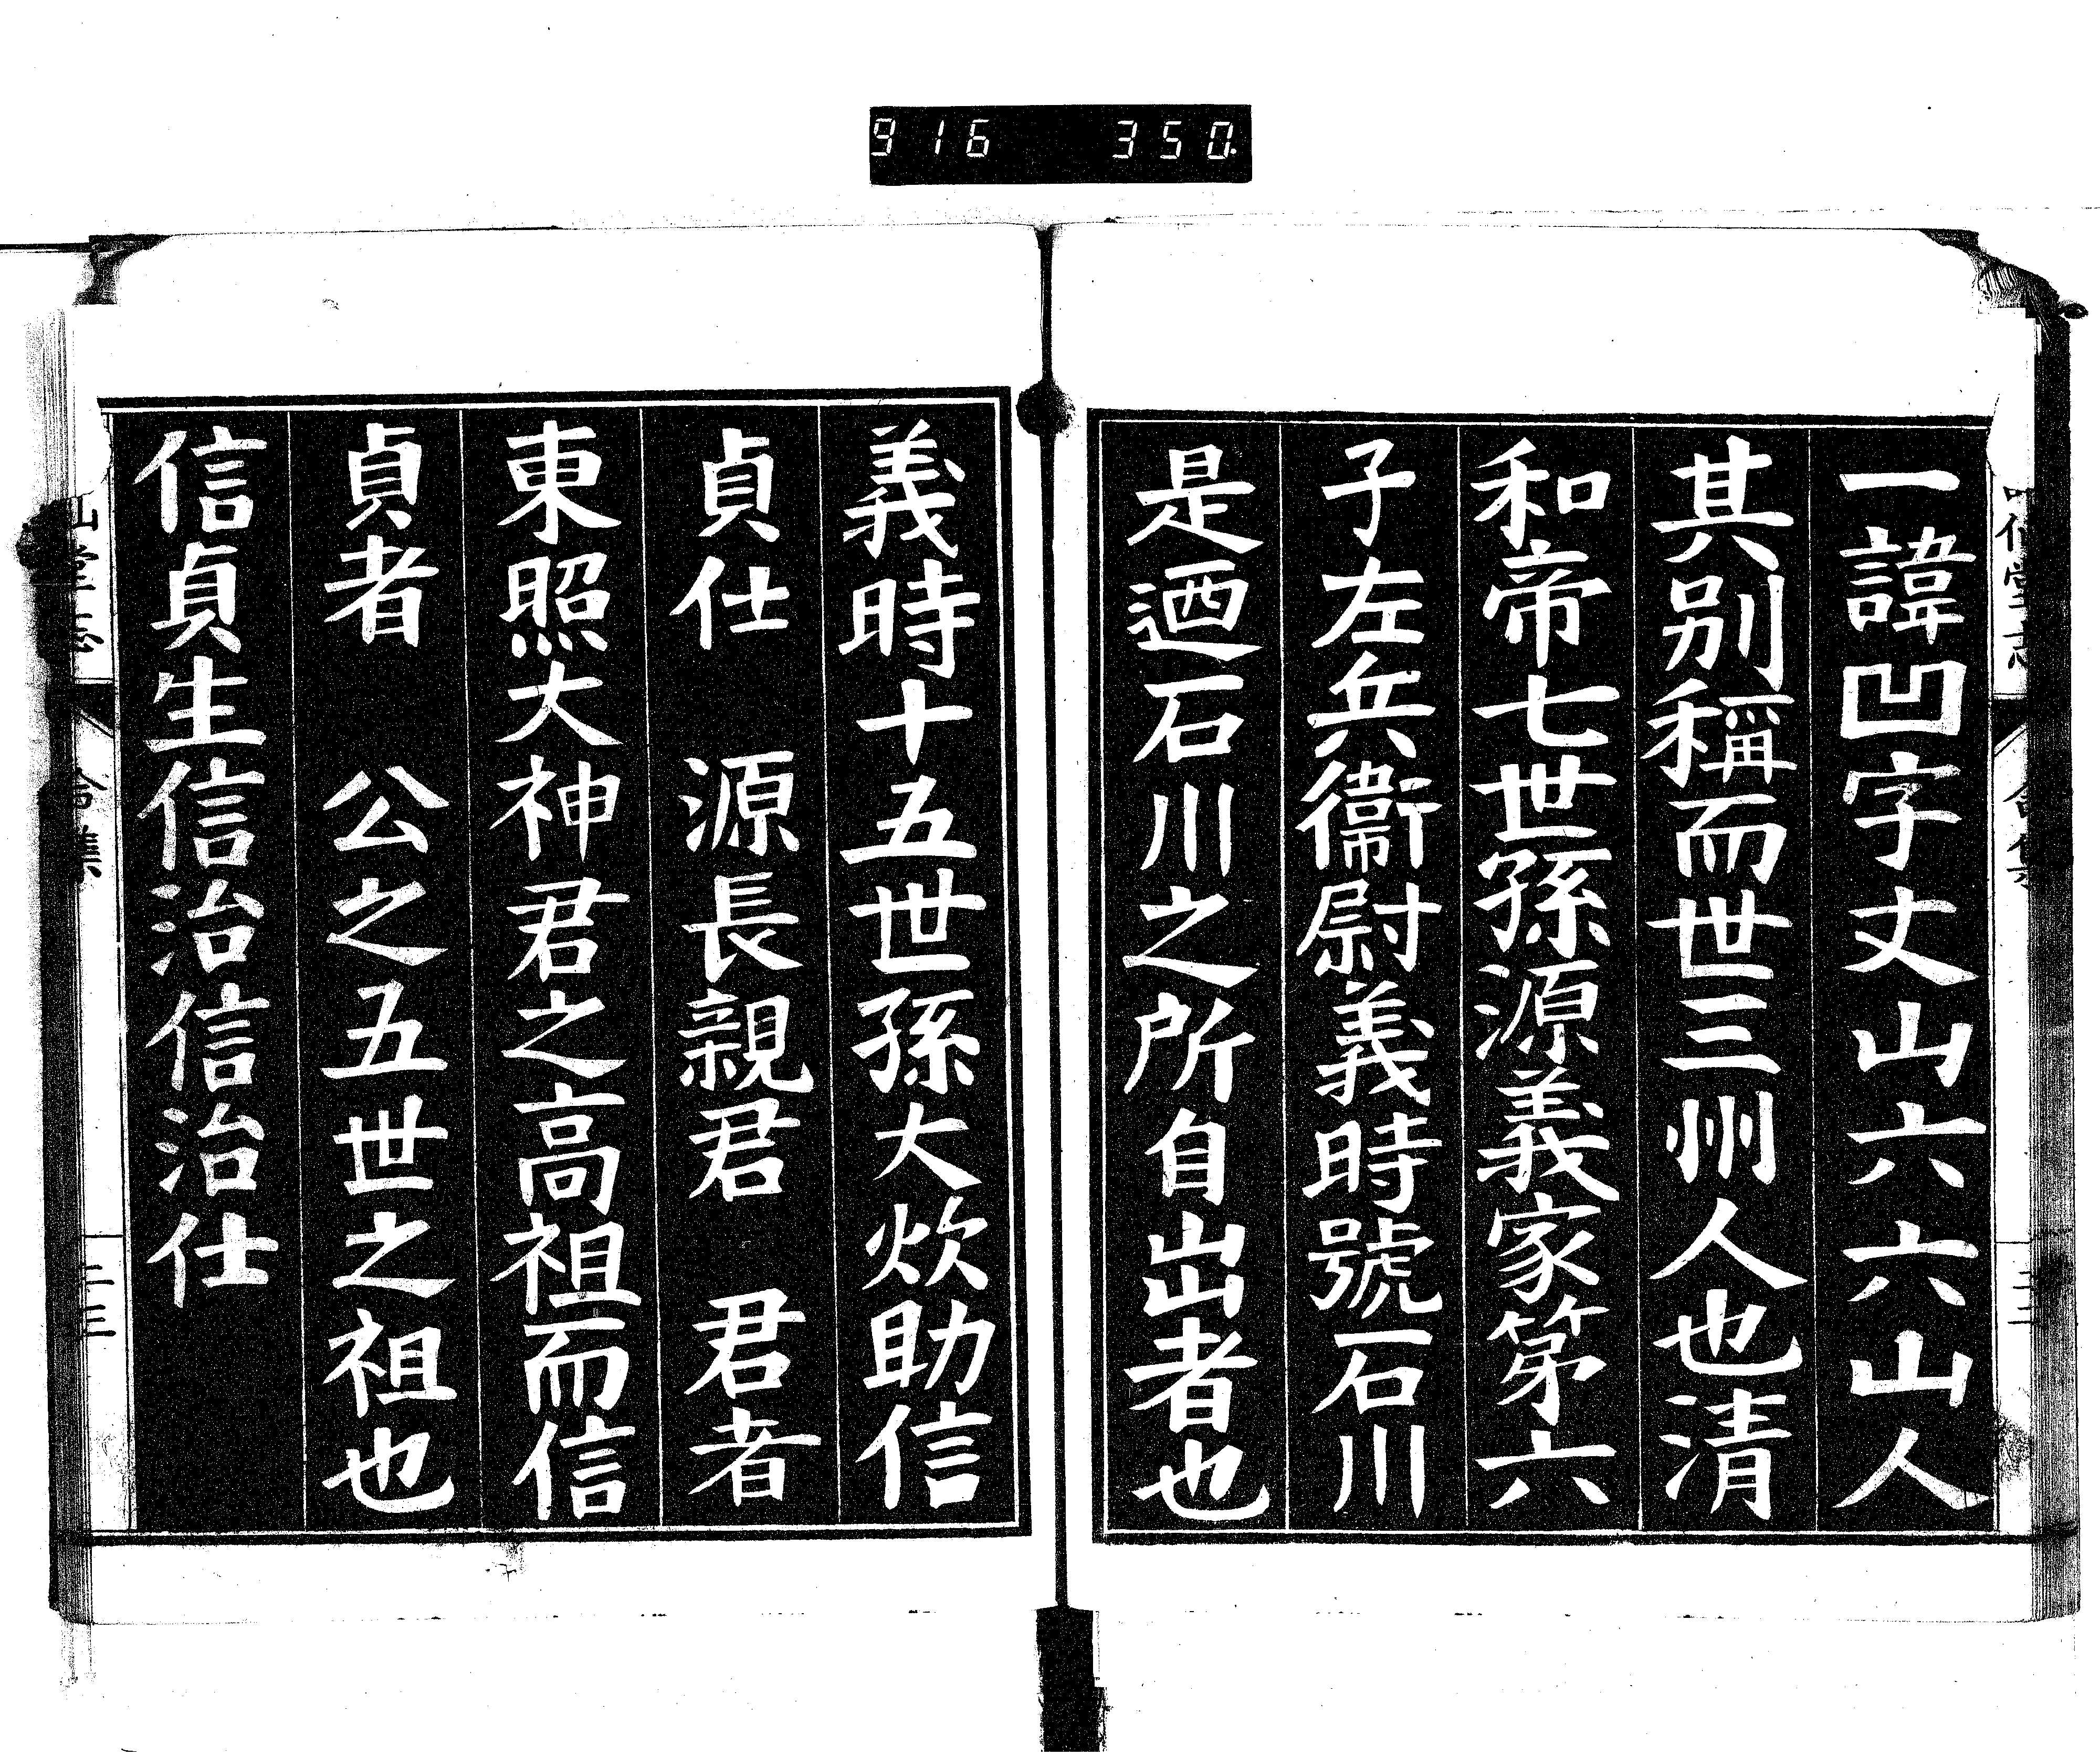 916 350.
一諱凹字丈山六六山人
其别稱而世三州人也清
和帝七世孫源義家第六
子左兵衞尉義時號石川
是迺石川之所自出者也
義時十五世孫大炊助信
貞仕 源長親君 君者
東照大神君之高祖而信
貞者 公之五世之祖也
信貞生信治信治仕
二三